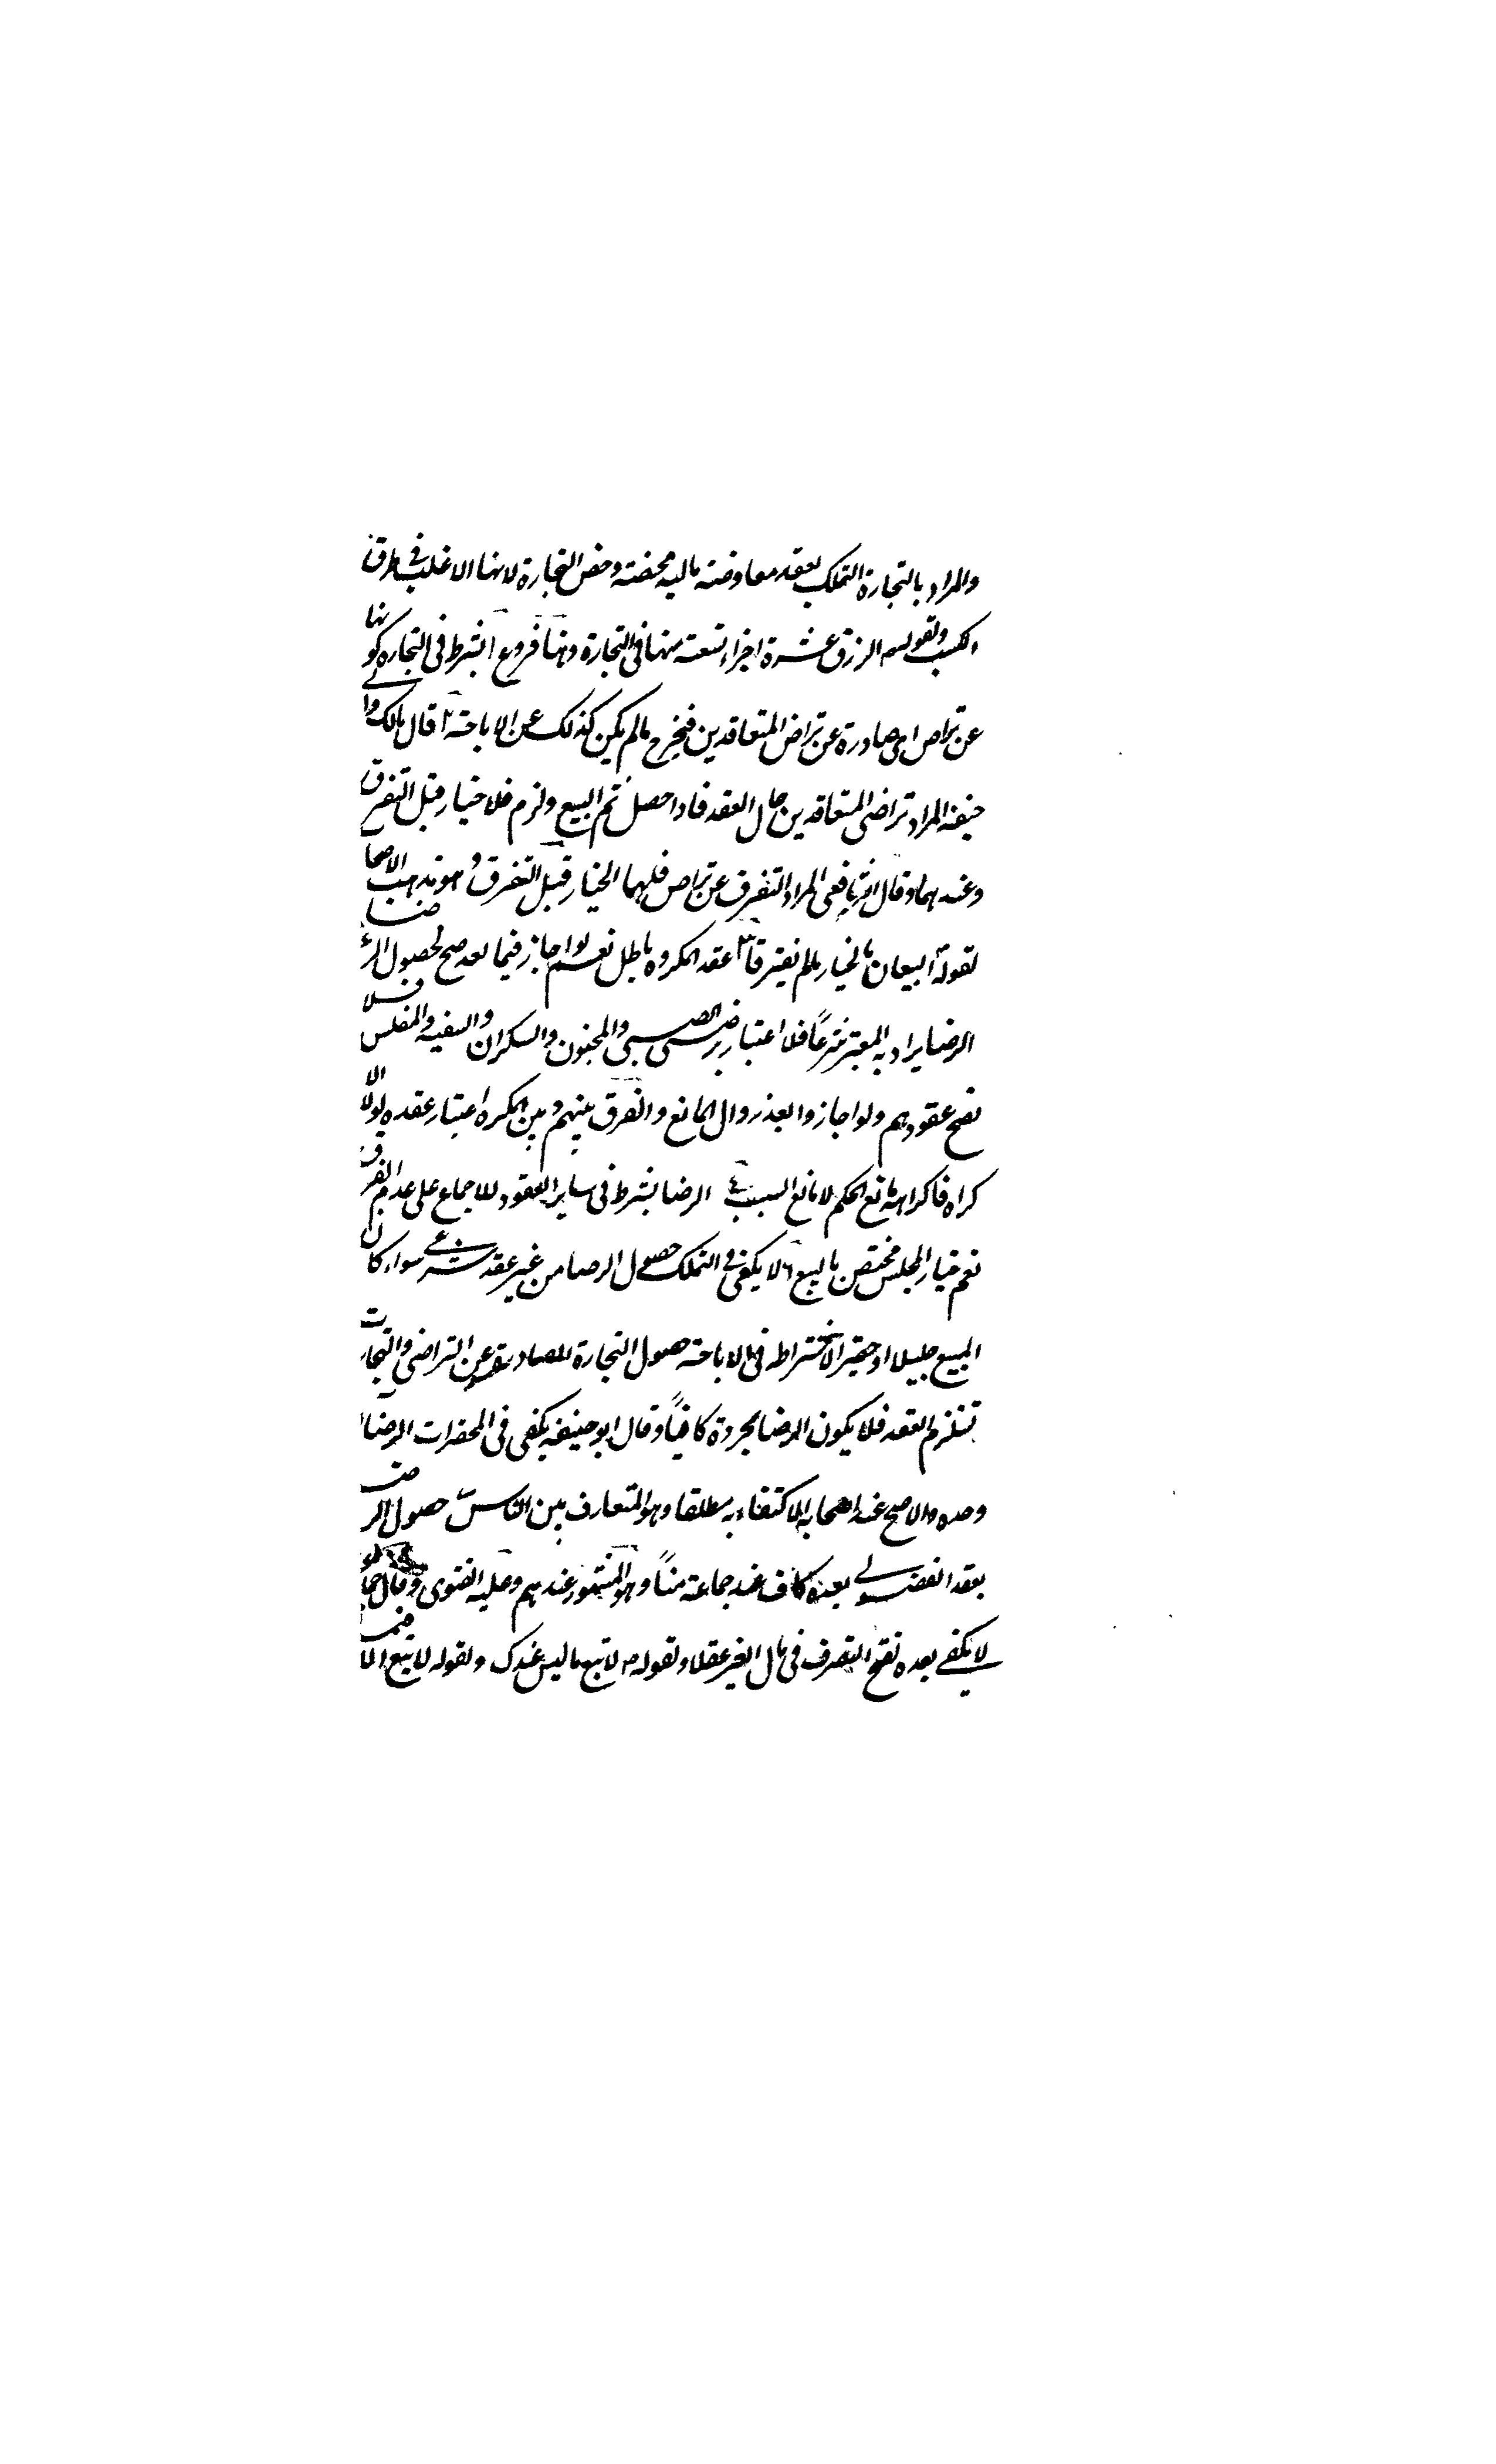 والمراد بالتجارة التملك بعقد معاوضة مالية محضة وخص التجارة لانها الاغلب في طرق
الكسب ولقوله الرزق عشرة اجزاء تسعة منها في التجارة وهنا فروع ا يشترط في التجارة كونها
عن تراض اى صادرة عن تراض المتعاقدين فيخرج ما لم يكن كذلك عن الاباحة ٢ قال مالك وابو
حنيفة المراد تراضى المتعاقدين حال العقد فاذا حصل تم البيع ولزم فلا خيار قبل التفرق
وعندهما وقال الشافعى المراد التفرق عن تراض فلهما الخيار قبل التفرق وهو مذهب الاصحاب
لقوله البيعان بالخيار ما لم يفترقا ٣ عقد المكروه باطل نعم لو اجاز فيما بعد صح لحصول الرضا
الرضا يراد به المعتبر شرعاً فلا اعتبار برضى الصبى والمجنون والسكران والسفيه والمفلس فلا
تصح عقودهم ولو اجازوا بعد زوال المانع والفرق بينهم وبين المكره اعتبار عقده لولا الا
كراه فاكراهه مانع الحكم لا مانع السبب ٤ الرضا يشترط في ساير العقود للاجماع على عدم الفرق
نعم خيار المجلس مختص بالبيع ٦ لا يكفى في التملك حصول الرضا من غير عقد شرعى سواء كان
المبيع جليلا او حقيرا لاشتراطه في الاباحة حصول التجارة الصادرة عن التراضى والتجارت
تستلزم العقد فلا يكون الرضا بمجرده كافياً وقال ابو حنيفة يكفى في المحقرات الرضا
وحده والاصح عند اصحابه الاكتفاء به مطلقا وهو المتعارف بين الناس حصول الرضا
بعقد الفضولى بعده كاف عند جماعة منا وهو المشهور عندهم وعليه الفتوى وقال جماعة
لا يكفى بعده لقبح التصرف في مال الغير عقلا ولقوله ص لا تبع ما ليس عندك ولقوله لا بيع الا فيما